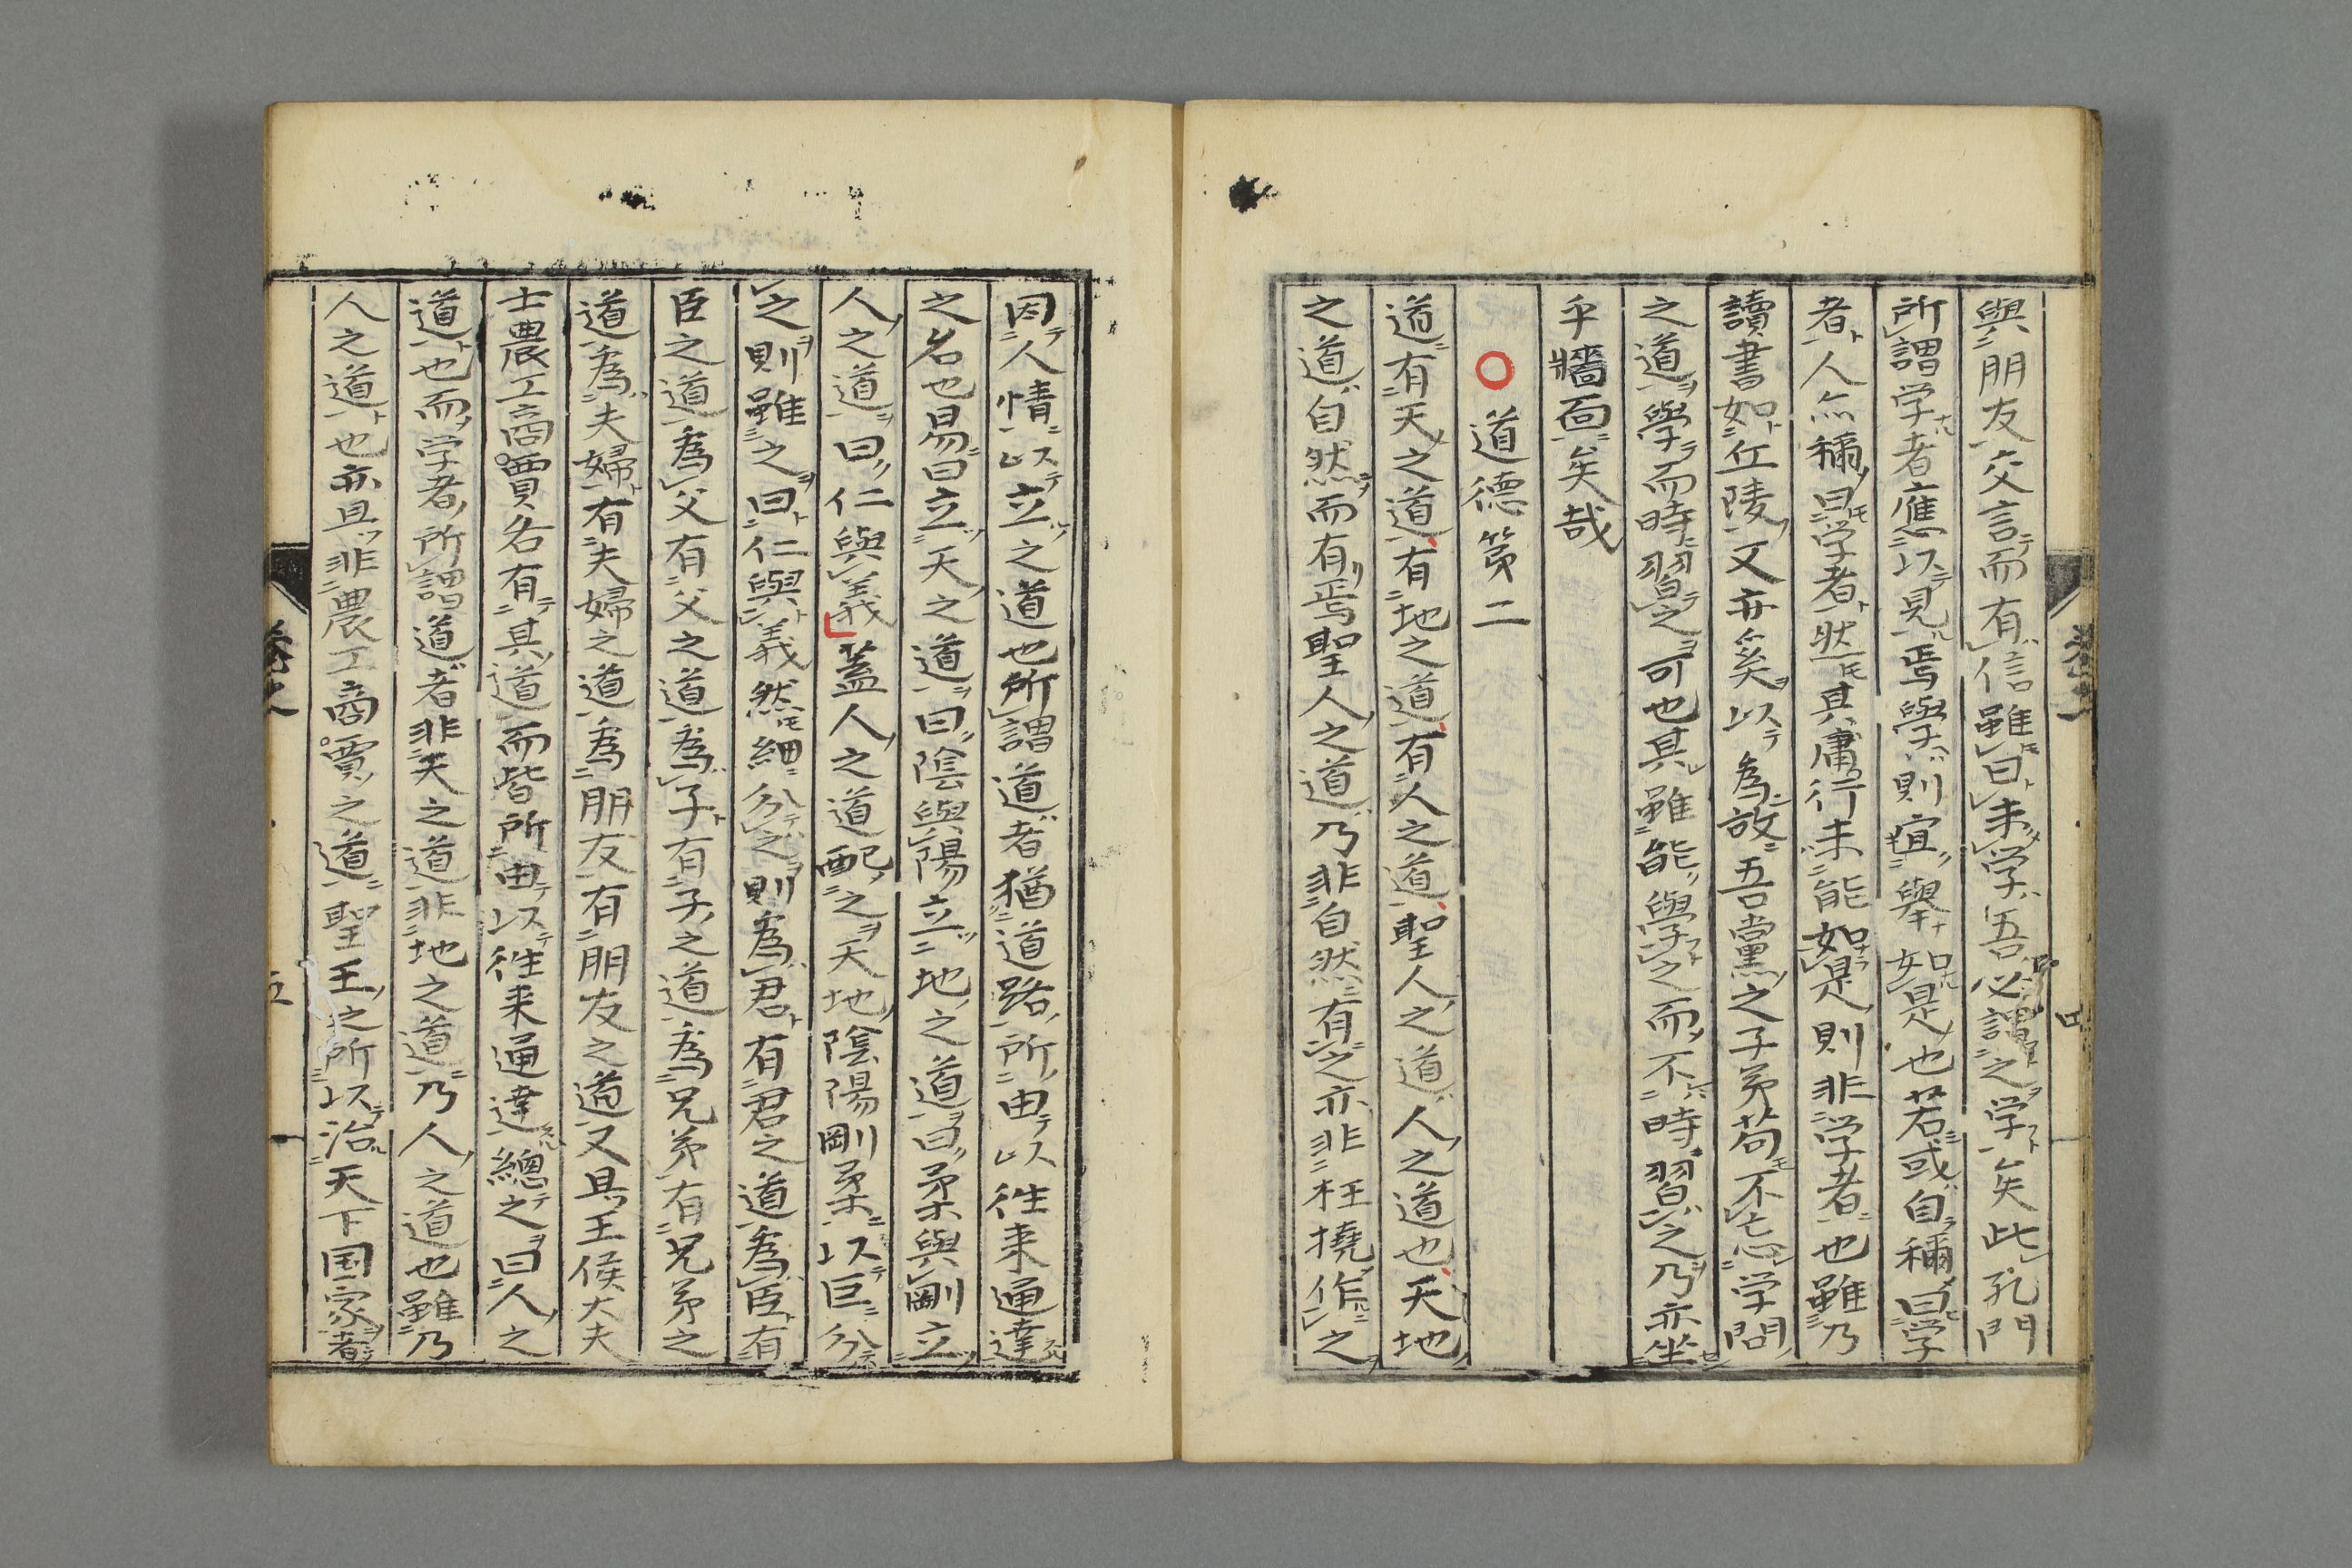 與朋友交言而有信雖曰未学吾必謂之学矣此孔門
所謂学者應以見焉與則宜舉如是也若或自稱曰学
者人亦稱曰学者然其庸行未能如是則非学者也雖乃
讀書如丘陵又亦奚以為故吾黨之子弟苟不忘学問
之道學而時習之可也其雖能學之而不時習之乃亦坐
乎牆面矣哉
○道德第二
道有天之道有地之道有人之道聖人之道人之道也天地
之道自然而有焉聖人之道乃非自然有之亦非枉撓作之
因人情以立之道也所謂道者猶道路所由以徃来通達
之名也易曰立天之道曰陰與陽立地之道曰柔與剛立
人之道曰仁與義蓋人之道配之天地陰陽剛柔以巨分
之則雖之曰仁與義然細分之則為君有君之道為臣有
臣之道為父有父之道為子有子之道為兄弟有兄弟之
道為夫婦有夫婦之道為朋友有朋友之道又且王侯大夫
士農工商賈各有其道而皆所由以徃来通達總之曰人之
道也而学者所謂道者非天之道非地之道乃人之道也雖乃
人之道也亦且非農工商賈之道聖王之所以治天下国家者